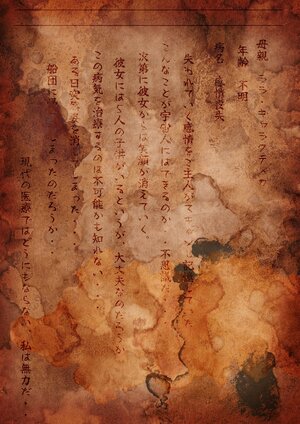 母親 ララ・ギャラクティカ
年齢 不明
病名 感情喪失
失われていく感情をご主人がとても
こんなことが宇宙人にはできるのか・・不思議だ
次第に彼女からは笑顔が消えていく。
彼女には5人の子供がいるというが、大丈夫なのだろうか
この病気を治療するのは不可能かも知れない・・・
ある日突然姿を消してしまった・・
船団には
まったのだろうか・・
現代の医療ではどうにもならない、私は無力だ・・